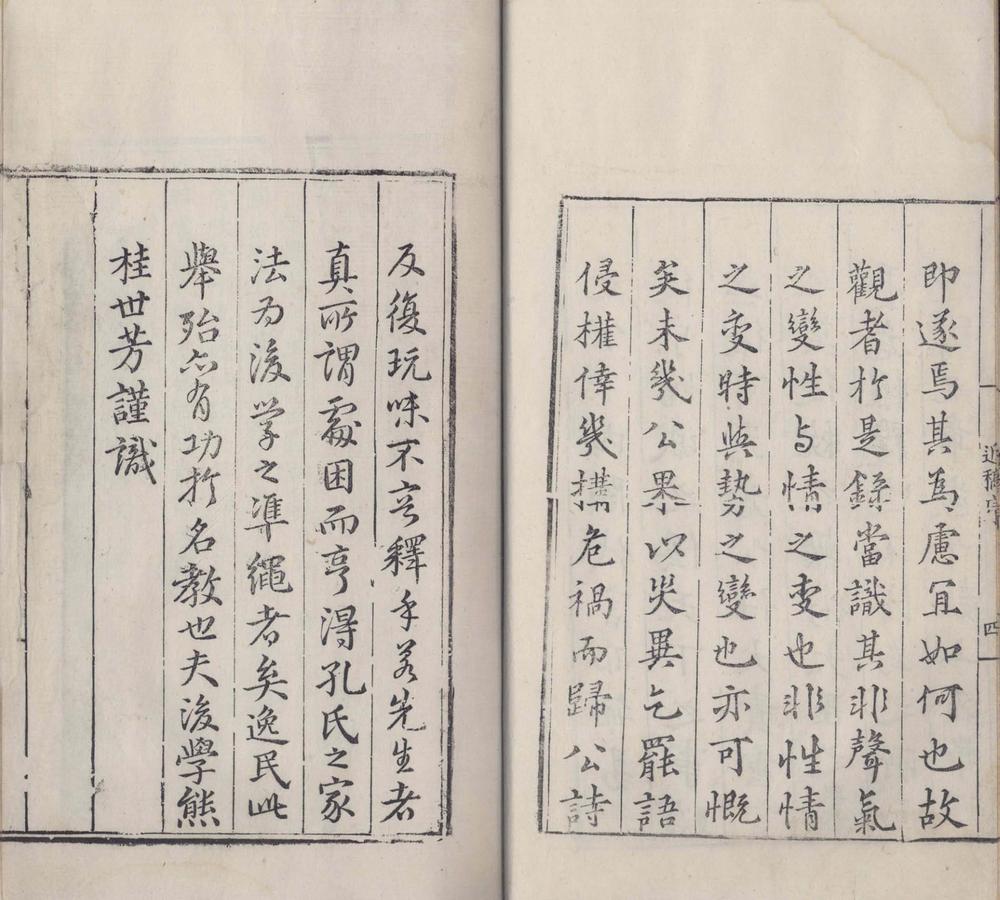 即遂焉其為慮冝如何也故
觀者扵是録當識其非聲氣
之變性与情之变也非性情
之变時與勢之變也亦可慨
矣未幾公果以災異乞罷語
侵權倖幾搆危禍而歸公詩
四
反復玩味不忍釋手若先生者
真所謂處困而亨得孔氏之家
法为後学之凖繩者矣逸民此
舉殆亦有功扵名教也夫後學熊
桂世芳謹識